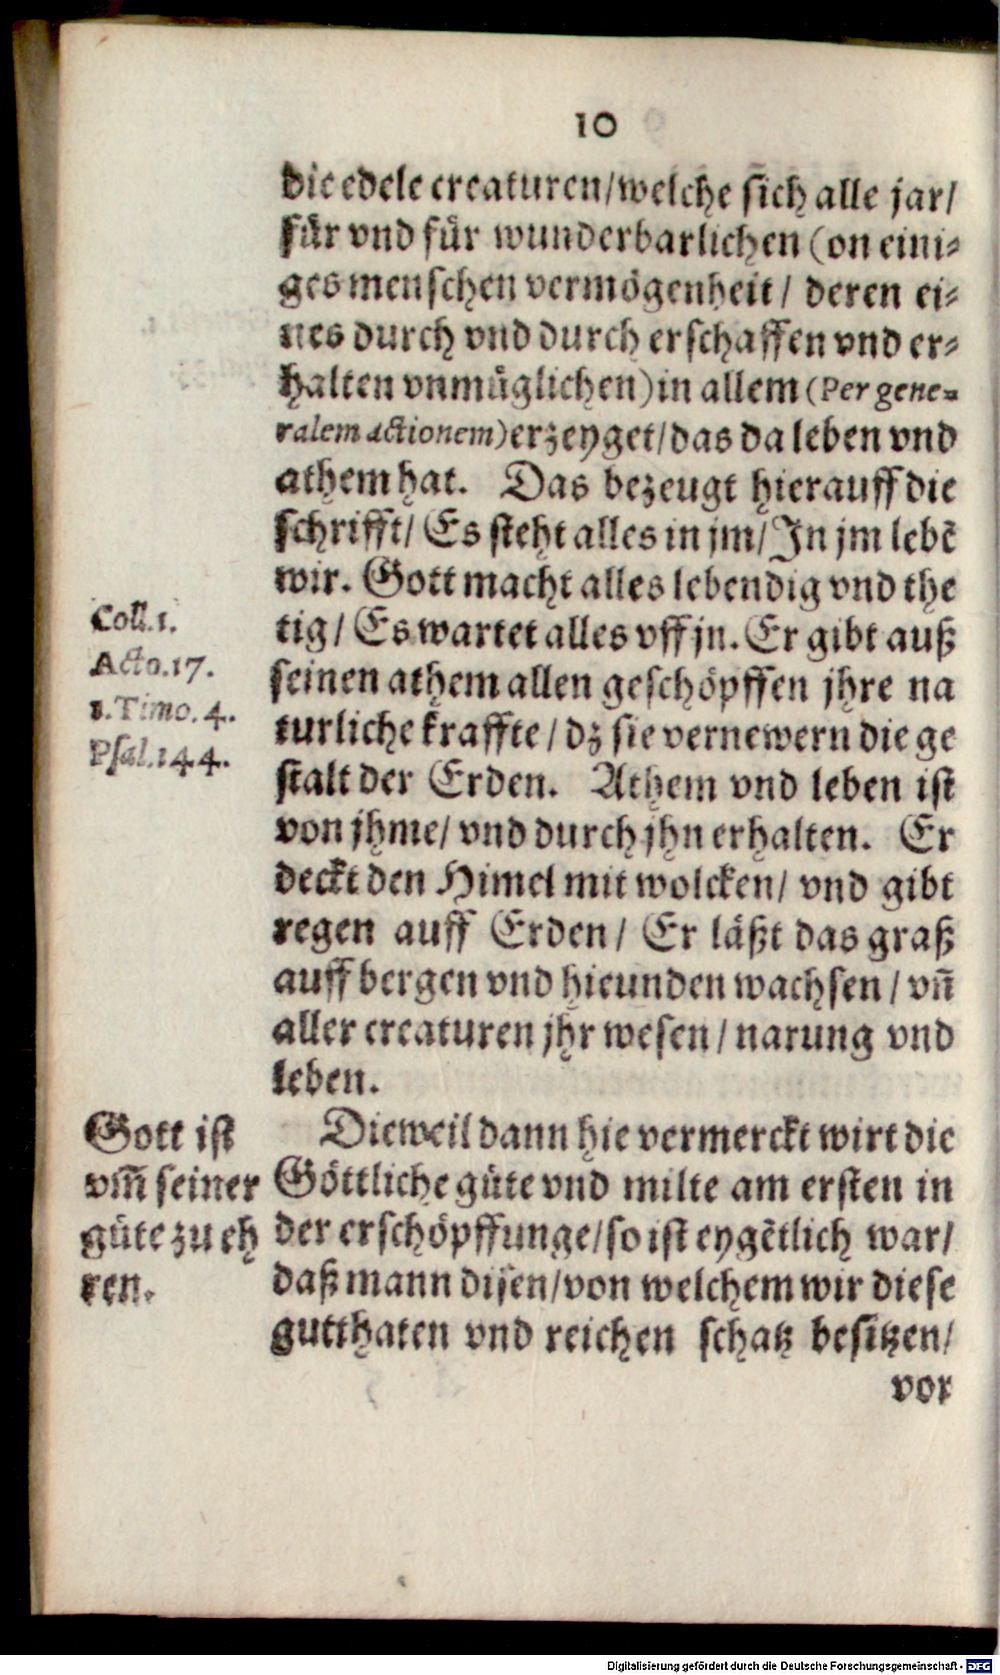 10
die edele creaturen/welche sich alle jar/
für vnd für wunderbarlichen (on eini-
ges menschen vermögenheit/ deren ei-
nes durch vnd durch erschaffen vnd er-
halten vnmüglichen) in allem (Per gene-
ralem actionem) erzeyget/das da leben vnd
athem hat. Das bezeugt hierauff die
schrifft/ Es steht alles in jm/In jm lebẽ
wir. Gott macht alles lebendig vnd the
tig/ Es wartet alles vff jn. Er gibt auß
seinen athem allen geschöpffen jhre na
turliche kraffte/ dz sie vernewern die ge
stalt der Erden. Athem vnd leben ist
von jhme/ vnd durch jhn erhalten. Er
deckt den Himel mit wolcken/ vnd gibt
regen auff Erden/ Er läßt das graß
auff bergen vnd hieunden wachsen/ vñ
aller creaturen jhr wesen/ narung vnd
leben.
Coll.1.
Acto.17.
1.Timo.4.
Psal.144.
Dieweil dann hie vermerckt wirt die
Göttliche güte vnd milte am ersten in
der erschöpffunge/so ist eygẽtlich war/
daß mann disen/von welchem wir diese
gutthaten vnd reichen schatz besitzen/
Gott ist
vm̃ seiner
güte zu eh
ren.
vor
Digitalisierung gefördert durch die Deutsche Forschungsgemeinschaft - DFG